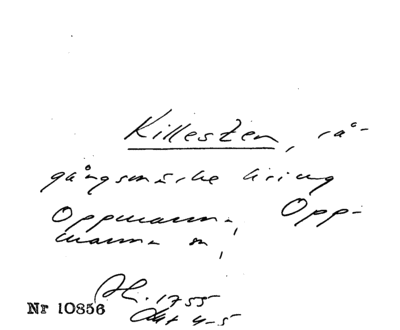 Killesten, rå-
gångsmärke kring
Oppmanna, Opp-
manna sn,
Ak. 1755
Akt 4-5
Nr 10856